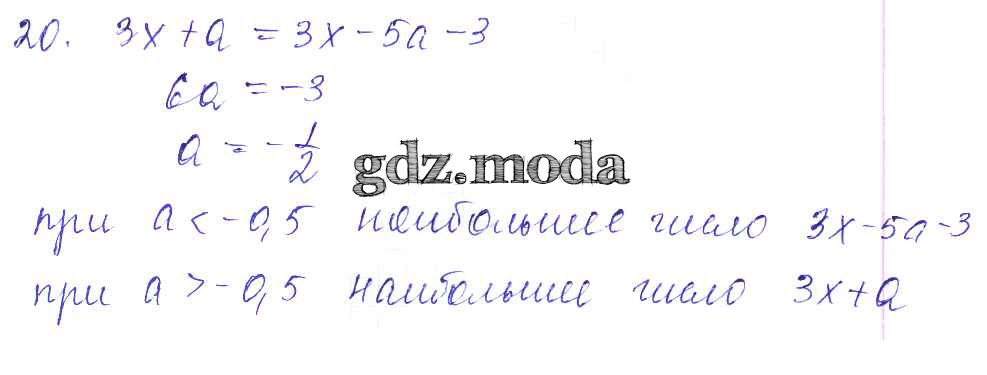 20. 3x + a = 3x - 5a - 3
6a = -3
a = -1/2
gdz.moda
при a < -0,5 наибольшее число 3x - 5a - 3
при a > -0,5 наибольшее число 3x + a